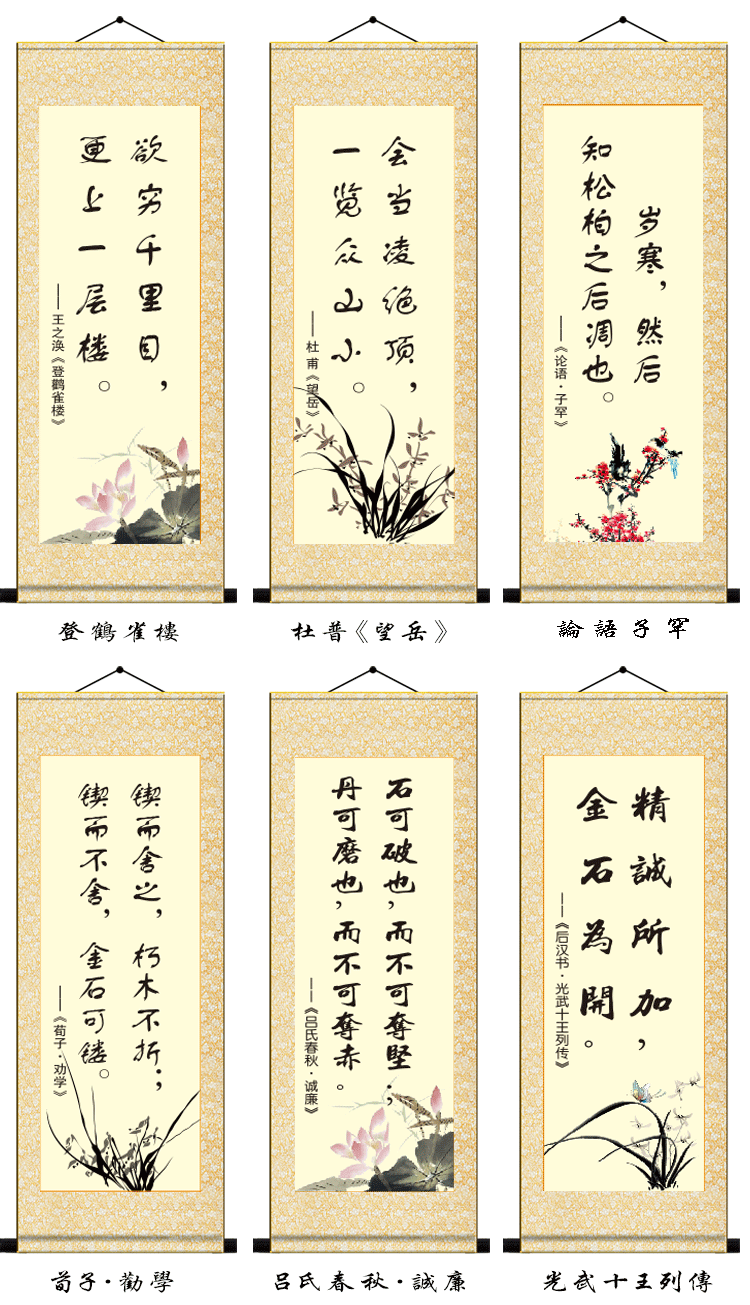 欲穷千里目，
更上一层楼。
——王之涣《登鹳雀楼》
登鶴雀樓
会当凌绝顶，
一览众山小。
——杜甫《望岳》
杜普《望岳》
岁寒，然后
知松柏之后凋也。
——《论语·子罕》
論語子罕
锲而舍之，朽木不折；
锲而不舍，金石可镂。
——《荀子·劝学》
荀子·勸學
石可破也，而不可夺坚；
丹可磨也，而不可夺赤。
——《吕氏春秋·诚廉》
吕氏春秋·誠廉
精誠所加，
金石為開。
——《后汉书·光武十王列传》
光武十王列傳